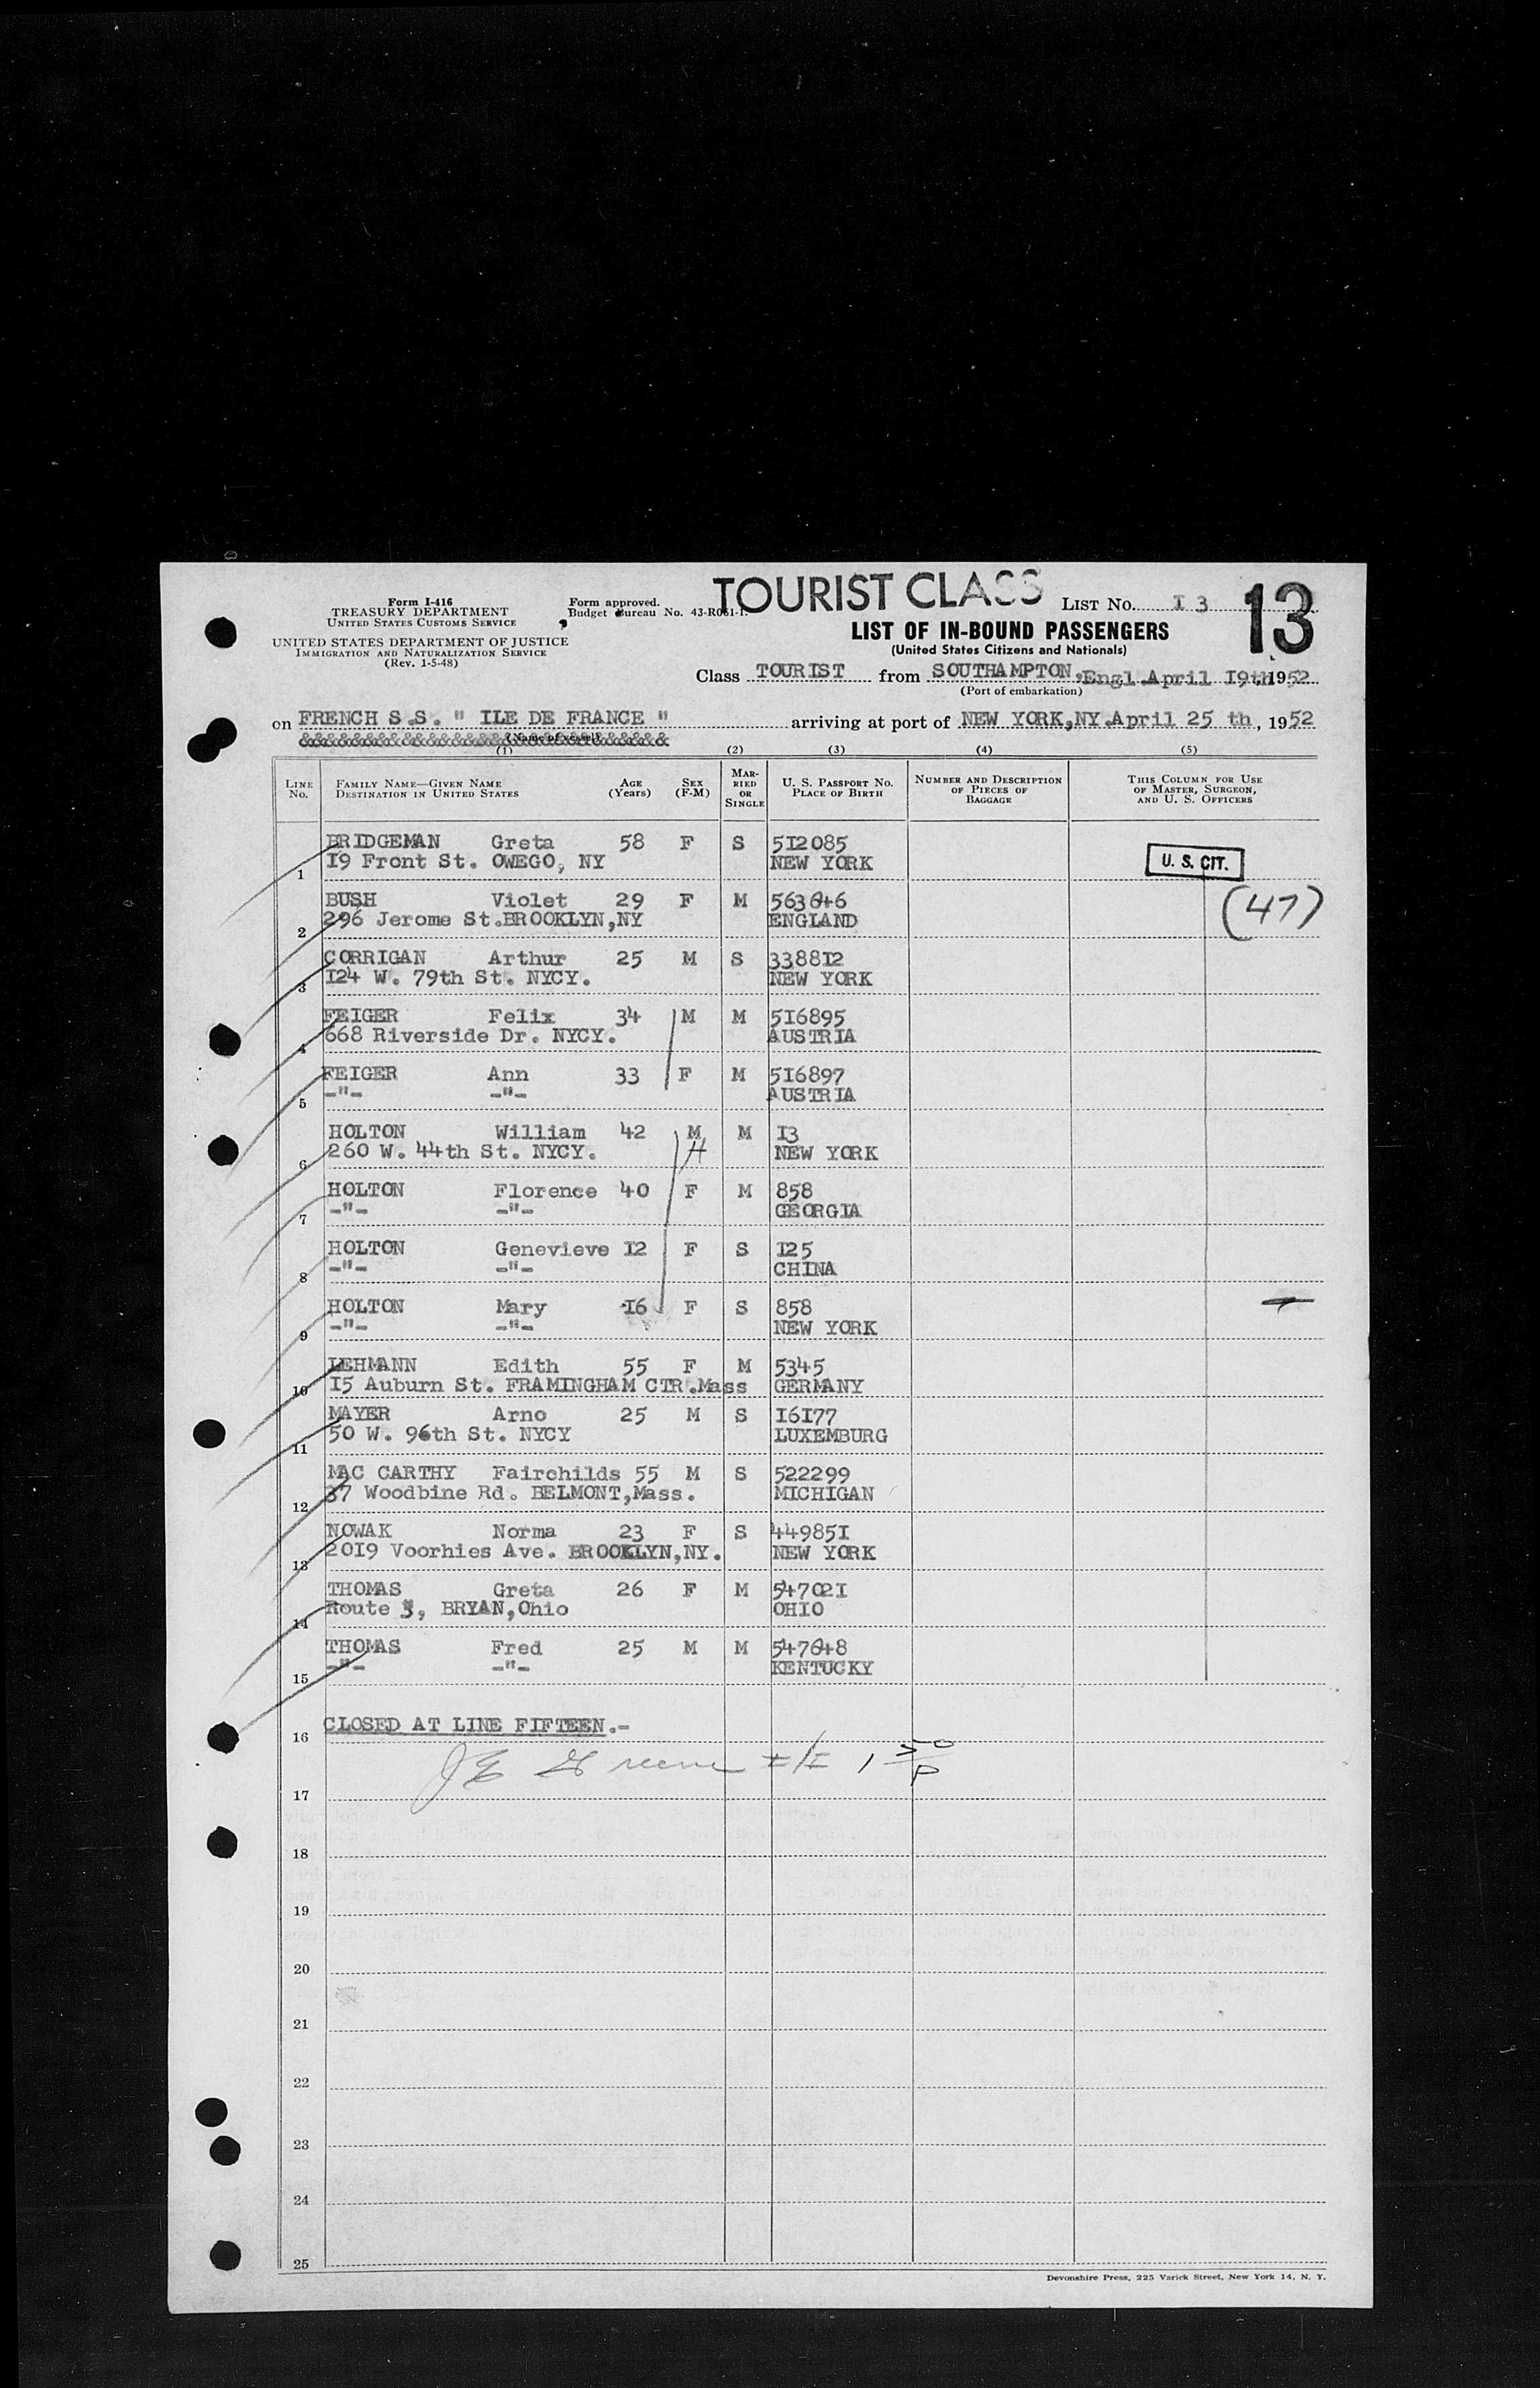 TOURIST CLASS
Form I-416
TREASURY DEPARTMENT
UNITED STATES CUSTOMS SERVICE
UNITED STATES DEPARTMENT OF JUSTICE
IMMIGRATION AND NATURALIZATION SERVICE
(Rev. 1-5-48)
Form approved.
Budget Bureau No. 43-R061-1.
LIST NO. I3
13
LIST OF IN-BOUND PASSENGERS
(United States Citizens and Nationals)
Class TOURIST from SOUTHAMPTON,Engl.April I9th,1952
(Port of embarkation)
on FRENCH S.S. " ILE DE FRANCE " arriving at port of NEW YORK,NY.April 25 th, 1952
(Name of vessel)
(1) (2) (3) (4) (5)
LINE No. FAMILY NAME—GIVEN NAME DESTINATION IN UNITED STATES AGE (Years) SEX (F-M) MARRIED OR SINGLE U. S. PASSPORT NO. PLACE OF BIRTH NUMBER AND DESCRIPTION OF PIECES OF BAGGAGE THIS COLUMN FOR USE OF MASTER, SURGEON, AND U. S. OFFICERS
BRIDGEMAN Greta 58 F S 5I2085
1 I9 Front St. OWEGO, NY NEW YORK
U. S. CIT.
BUSH Violet 29 F M 563646
2 296 Jerome St.BROOKLYN,NY ENGLAND
(47)
CORRIGAN Arthur 25 M S 3388I2
3 I24 W. 79th St. NYCY. NEW YORK
FEIGER Felix 34 M M 5I6895
4 668 Riverside Dr. NYCY. AUSTRIA
FEIGER Ann 33 F M 5I6897
5 -"- -"- AUSTRIA
HOLTON William 42 M M I3
6 260 W. 44th St. NYCY. H NEW YORK
HOLTON Florence 40 F M 858
7 -"- -"- GEORGIA
HOLTON Genevieve I2 F S I25
8 -"- -"- CHINA
HOLTON Mary I6 F S 858
9 -"- -"- NEW YORK
LEHMANN Edith 55 F M 5345
10 I5 Auburn St. FRAMINGHAM CTR.Mass GERMANY
MAYER Arno 25 M S I6I77
11 50 W. 96th St. NYCY LUXEMBURG
MAC CARTHY Fairchilds 55 M S 522299
12 37 Woodbine Rd. BELMONT,Mass. MICHIGAN
NOWAK Norma 23 F S 44985I
13 20I9 Voorhies Ave. BROOKLYN,NY. NEW YORK
THOMAS Greta 26 F M 54702I
14 Route 3, BRYAN,Ohio OHIO
THOMAS Fred 25 M M 547648
15 -"- -"- KENTUCKY
16 CLOSED AT LINE FIFTEEN.-
17
18
19
20
21
22
23
24
25
Devonshire Press, 225 Varick Street, New York 14, N. Y.